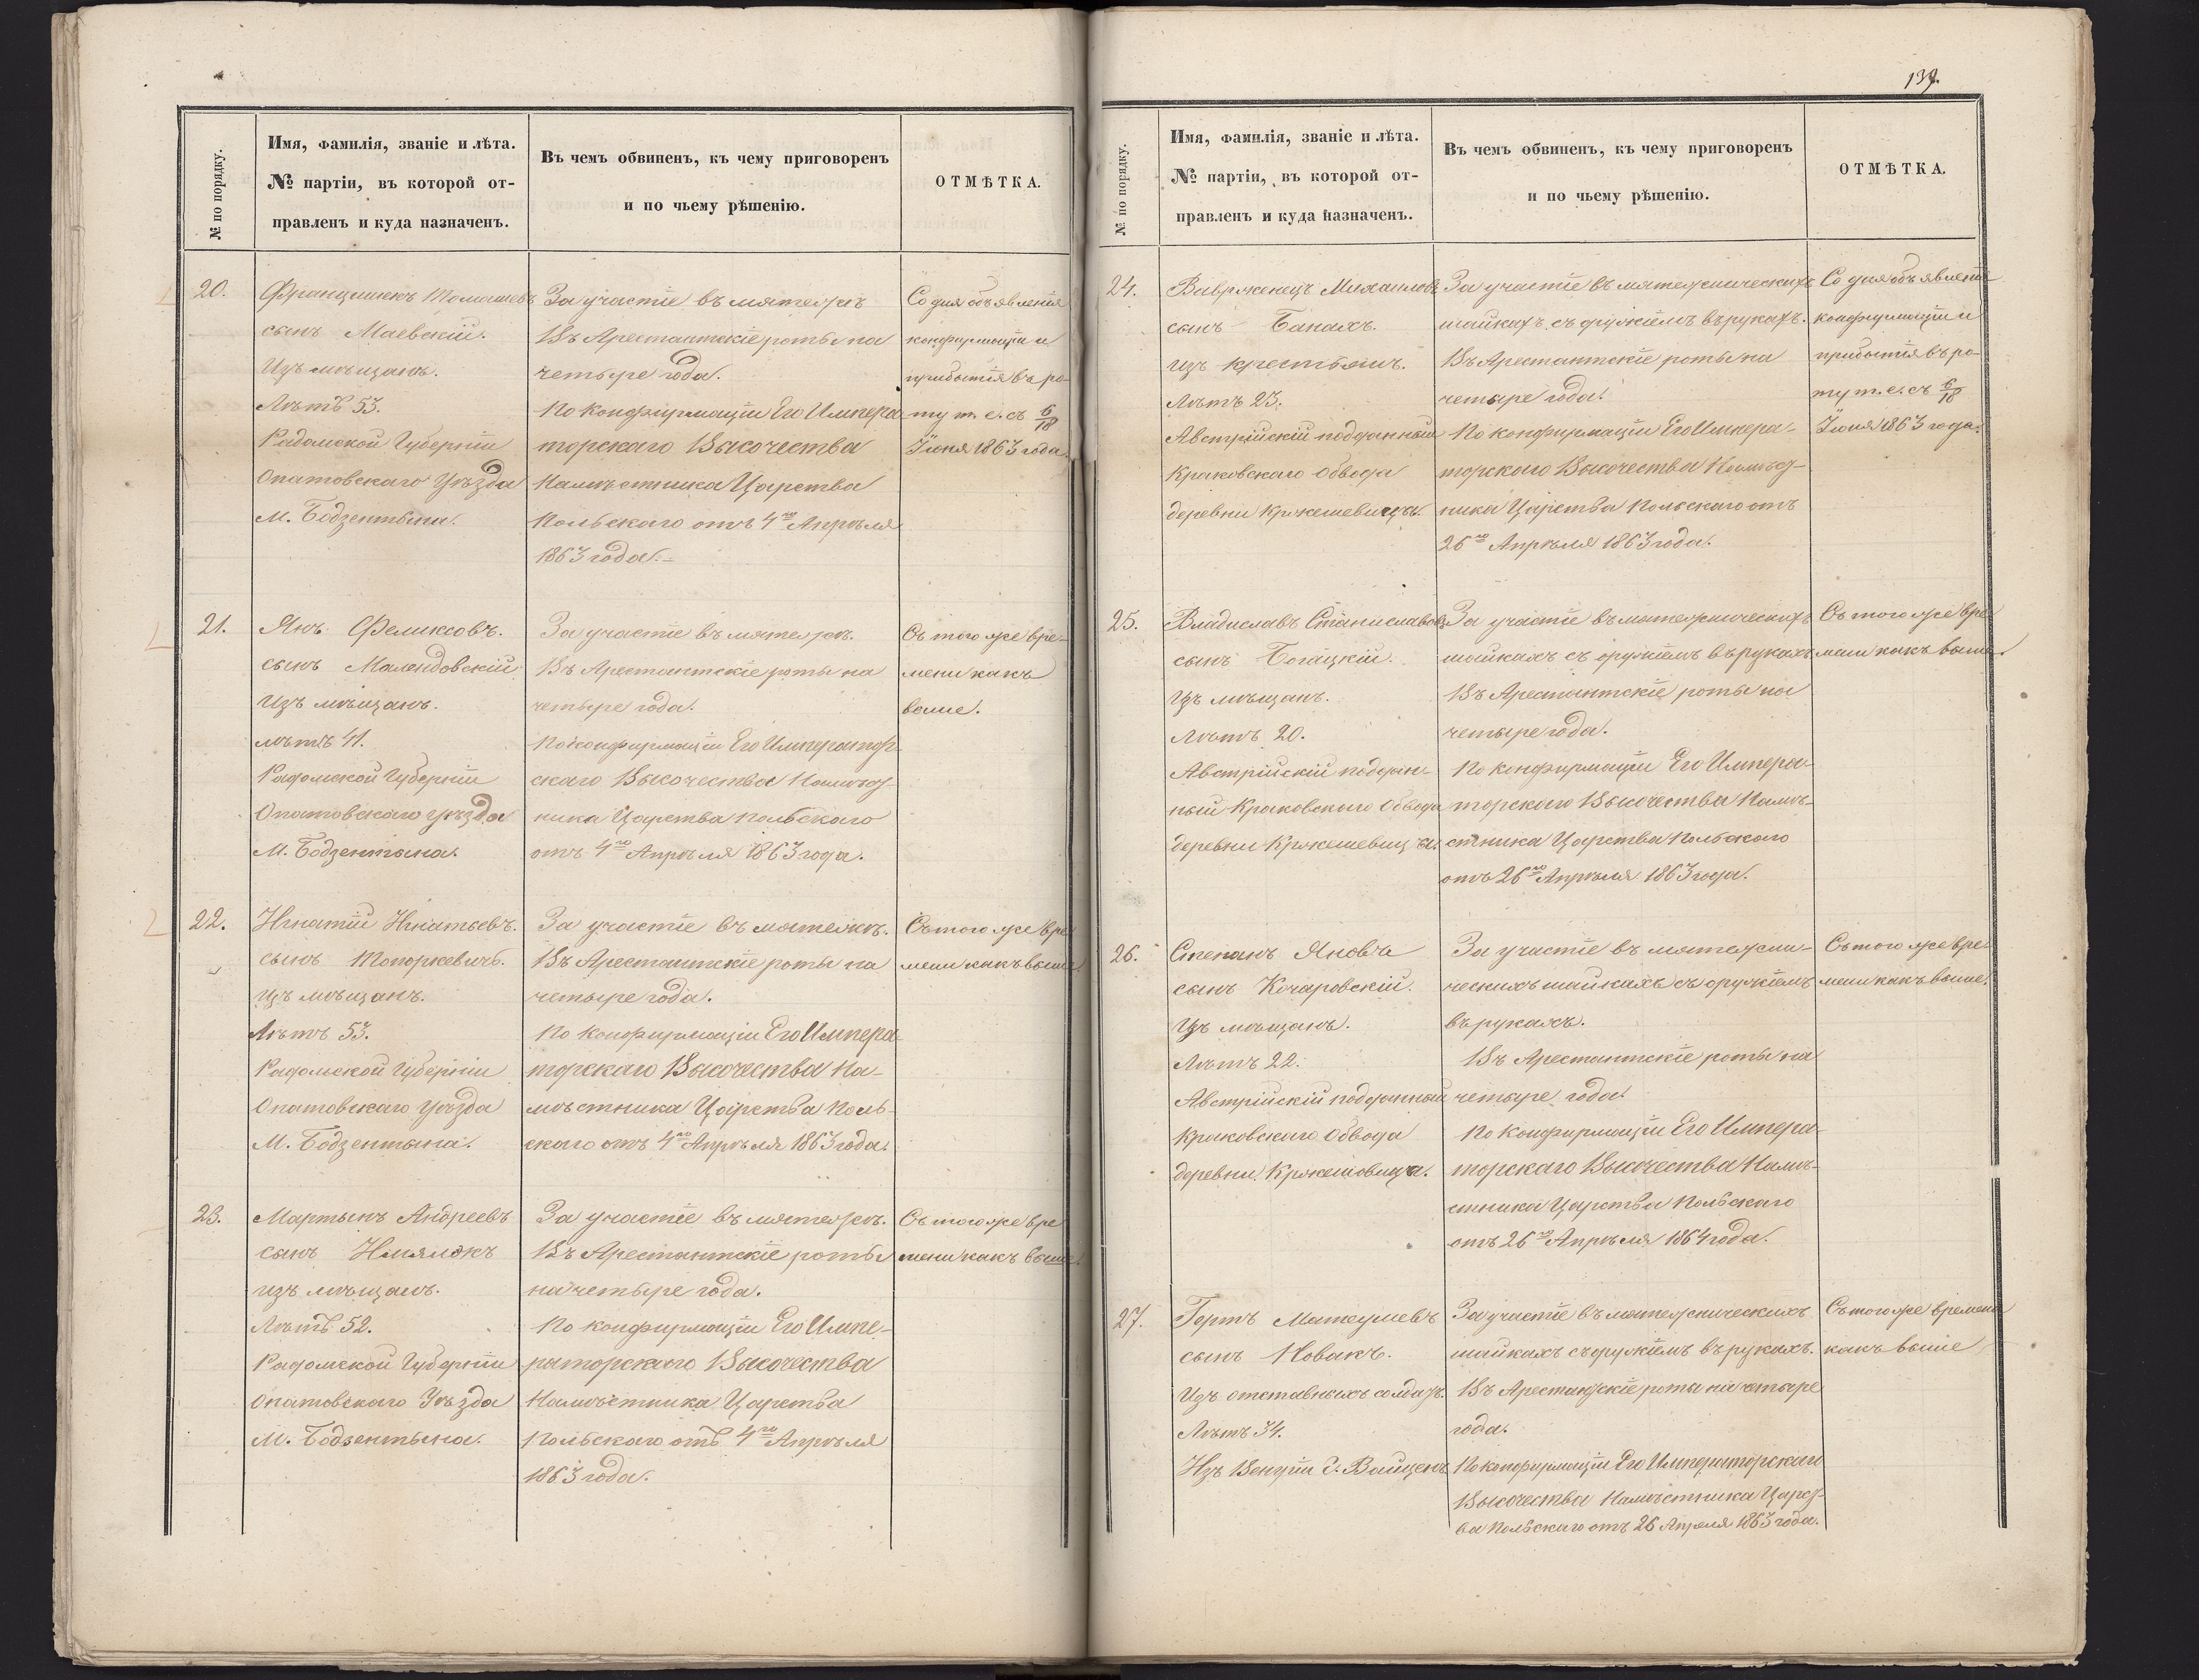 № по порядку.
Имя, фамилія, званіе и лѣта.
№ партіи, въ которой от-
правленъ и куда назначенъ.
Въ чемъ обвиненъ, къ чему приговоренъ
и по чьему рѣшенію.
ОТМѢТКА.
20.
Францишекъ Томашевъ
сынъ Маевскій.
Изъ мѣщанъ.
Лѣтъ 53.
Радомской Губерніи
Опатовскаго Уѣзда
М. Бодзентына.
За участіе въ мятежѣ
Въ Арестантскіе роты на
четыре года.
По конфирмаціи Его Импера
торскаго Высочества
Намѣстника Царства
Польскаго отъ 4го Апрѣля
1863 года.
Со дня объявленія
конфирмаціи и
прибытія въ ро-
ту т. е. съ 6/18
Іюня 1863 года.
21.
Янъ Феликсовъ.
сынъ Малендовскій
Изъ мѣщанъ.
лѣтъ 41.
Радомской Губерніи
Опатовскаго уѣзда
М. Бодзентына.
За участіе въ мятежѣ.
Въ Арестантскіе роты на
четыре года.
По конфирмаціи Его Император
скаго Высочества Намѣст-
ника Царства Польскаго
отъ 4го Апрѣля 1863 года.
Съ того же вре-
мени какъ
выше.
22.
Игнатій Игнатьевъ.
сынъ Топоркевичъ.
Изъ мѣщанъ.
Лѣтъ 53.
Радомской Губерніи
Опатовскаго уѣзда
М. Бодзентына.
За участіе въ мятежѣ.
Въ Арестантскіе роты на
четыре года.
По конфирмаціи Его Импера-
торскаго Высочества На-
мѣстника Царства Поль-
скаго отъ 4го Апрѣля 1863 года.
Съ того же вре
мени какъ выше.
23.
Мартынъ Андреевъ
сынъ
изъ мѣщанъ.
Лѣтъ 52.
Радомской Губерніи
Опатовскаго Уѣзда
М. Бодзентына.
За участіе въ мятежѣ.
Въ Арестантскіе роты
на четыре года.
По конфирмаціи Его Импе-
раторскаго Высочества
Намѣстника Царства
Польскаго отъ 4го Апрѣля
1863 года.
Съ того же вре
мени какъ выше.
139.
№ по порядку.
Имя, фамилія, званіе и лѣта.
№ партіи, въ которой от-
правленъ и куда назначенъ.
Въ чемъ обвиненъ, къ чему приговоренъ
и по чьему рѣшенію.
ОТМѢТКА.
24.
Ваврженецъ Михаиловъ
сынъ Банахъ.
изъ крестьянъ.
Лѣтъ 23.
Австрійскій подданный
Краковскаго Обвода
деревни Кржешевица.
За участіе въ мятежническихъ
шайкахъ съ оружіемъ въ рукахъ.
Въ Арестантскіе роты на
четыре года.
По конфирмаціи Его Импера-
торскаго Высочества Намѣст-
ника Царства Польскаго отъ
26го Апрѣля 1863 года.
Со дня объявленія
конфирмаціи и
прибытія въ ро-
ту т. е. съ 6/18
Іюня 1863 года.
25.
Владиславъ Станиславовъ
сынъ Богацкій.
Изъ мѣщанъ.
Лѣтъ 20.
Австрійскій поддан-
ный Краковскаго Обвода
деревни Кржешевица.
За участіе въ мятежническихъ
шайкахъ съ оружіемъ въ рукахъ
Въ Арестантскіе роты на
четыре года.
По конфирмаціи Его Импера-
торскаго Высочества Намѣ-
стника Царства Польскаго
отъ 26го Апрѣля 1863 года.
Съ того же вре
мени какъ выше.
26.
Степанъ Яновъ
сынъ Кочаровскій.
Изъ мѣщанъ.
Лѣтъ 22.
Австрійскій подданный
Краковскаго Обвода
деревни Кржешовица.
За участіе въ мятежни-
ческихъ шайкахъ съ оружіемъ
въ рукахъ.
Въ Арестантскіе роты на
четыре года.
По конфирмаціи Его Импера-
торскаго Высочества Намѣ-
стника Царства Польскаго
отъ 26го Апрѣля 1864 года.
Съ того же вре
мени какъ выше.
27.
Матеушевъ
сынъ Новакъ.
Изъ отставныхъ солдатъ.
Лѣтъ 34.
Изъ Венгріи
За участіе въ мятежническихъ
шайкахъ съ оружіемъ въ рукахъ.
Въ Арестантскіе роты на четыре
года.
По конфирмаціи Его Императорскаго
Высочества Намѣстника Царст-
ва Польскаго отъ 26 Апреля 1863 года.
Съ того же времени
какъ выше